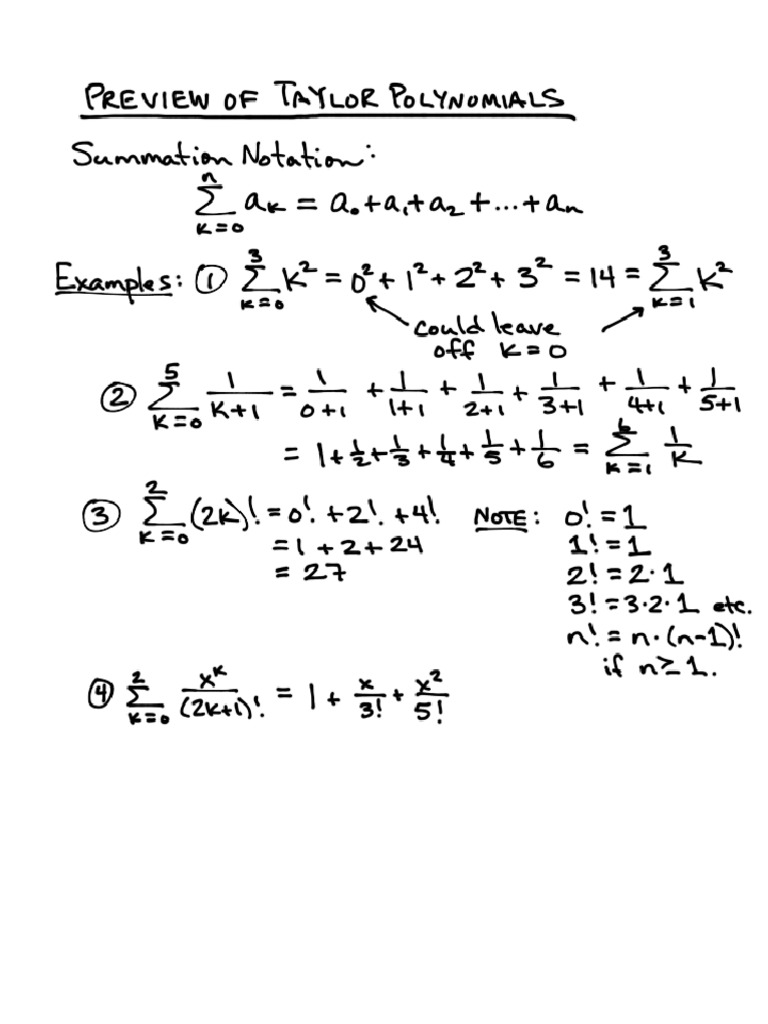 PREVIEW OF TAYLOR POLYNOMIALS
Summation Notation:
n
∑ aₖ = a₀ + a₁ + a₂ + ... + aₙ
k=0
Examples: ① ∑_{k=0}^{3} k² = 0² + 1² + 2² + 3² = 14 = ∑_{k=1}^{3} k²
could leave
off k=0
② ∑_{k=0}^{5} 1/(k+1) = 1/(0+1) + 1/(1+1) + 1/(2+1) + 1/(3+1) + 1/(4+1) + 1/(5+1)
= 1 + 1/2 + 1/3 + 1/4 + 1/5 + 1/6 = ∑_{k=1}^{6} 1/k
③ ∑_{k=0}^{2} (2k)! = 0! + 2! + 4! NOTE: 0! = 1
= 1 + 2 + 24 1! = 1
= 27 2! = 2·1
3! = 3·2·1 etc.
n! = n·(n-1)!
if n≥1.
④ ∑_{k=0}^{2} x^k/(2k+1)! = 1 + x/3! + x²/5!